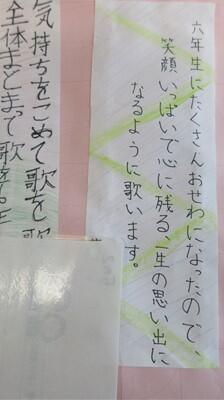 六年生にたくさんおせわになったので、
笑顔いっぱいで心に残る、一生の思い出に
なるように歌います。
気持ちをこめて歌を
全体まとまって歌を